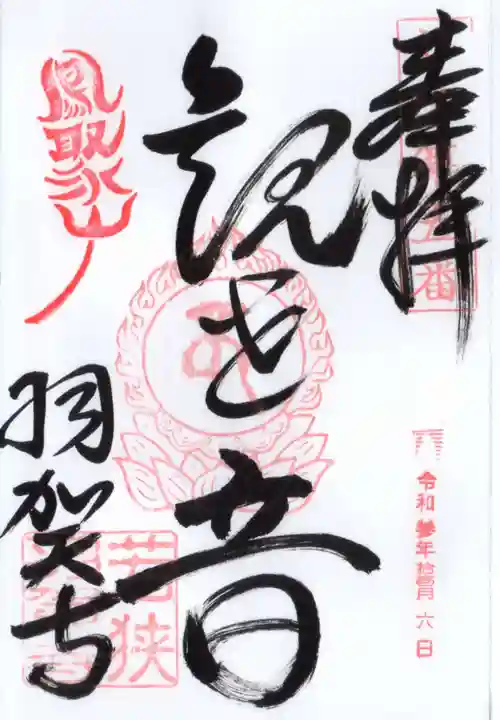 奉拝
令和参年拾壱月六日
観世音
鳳聚山
羽賀寺
若狭